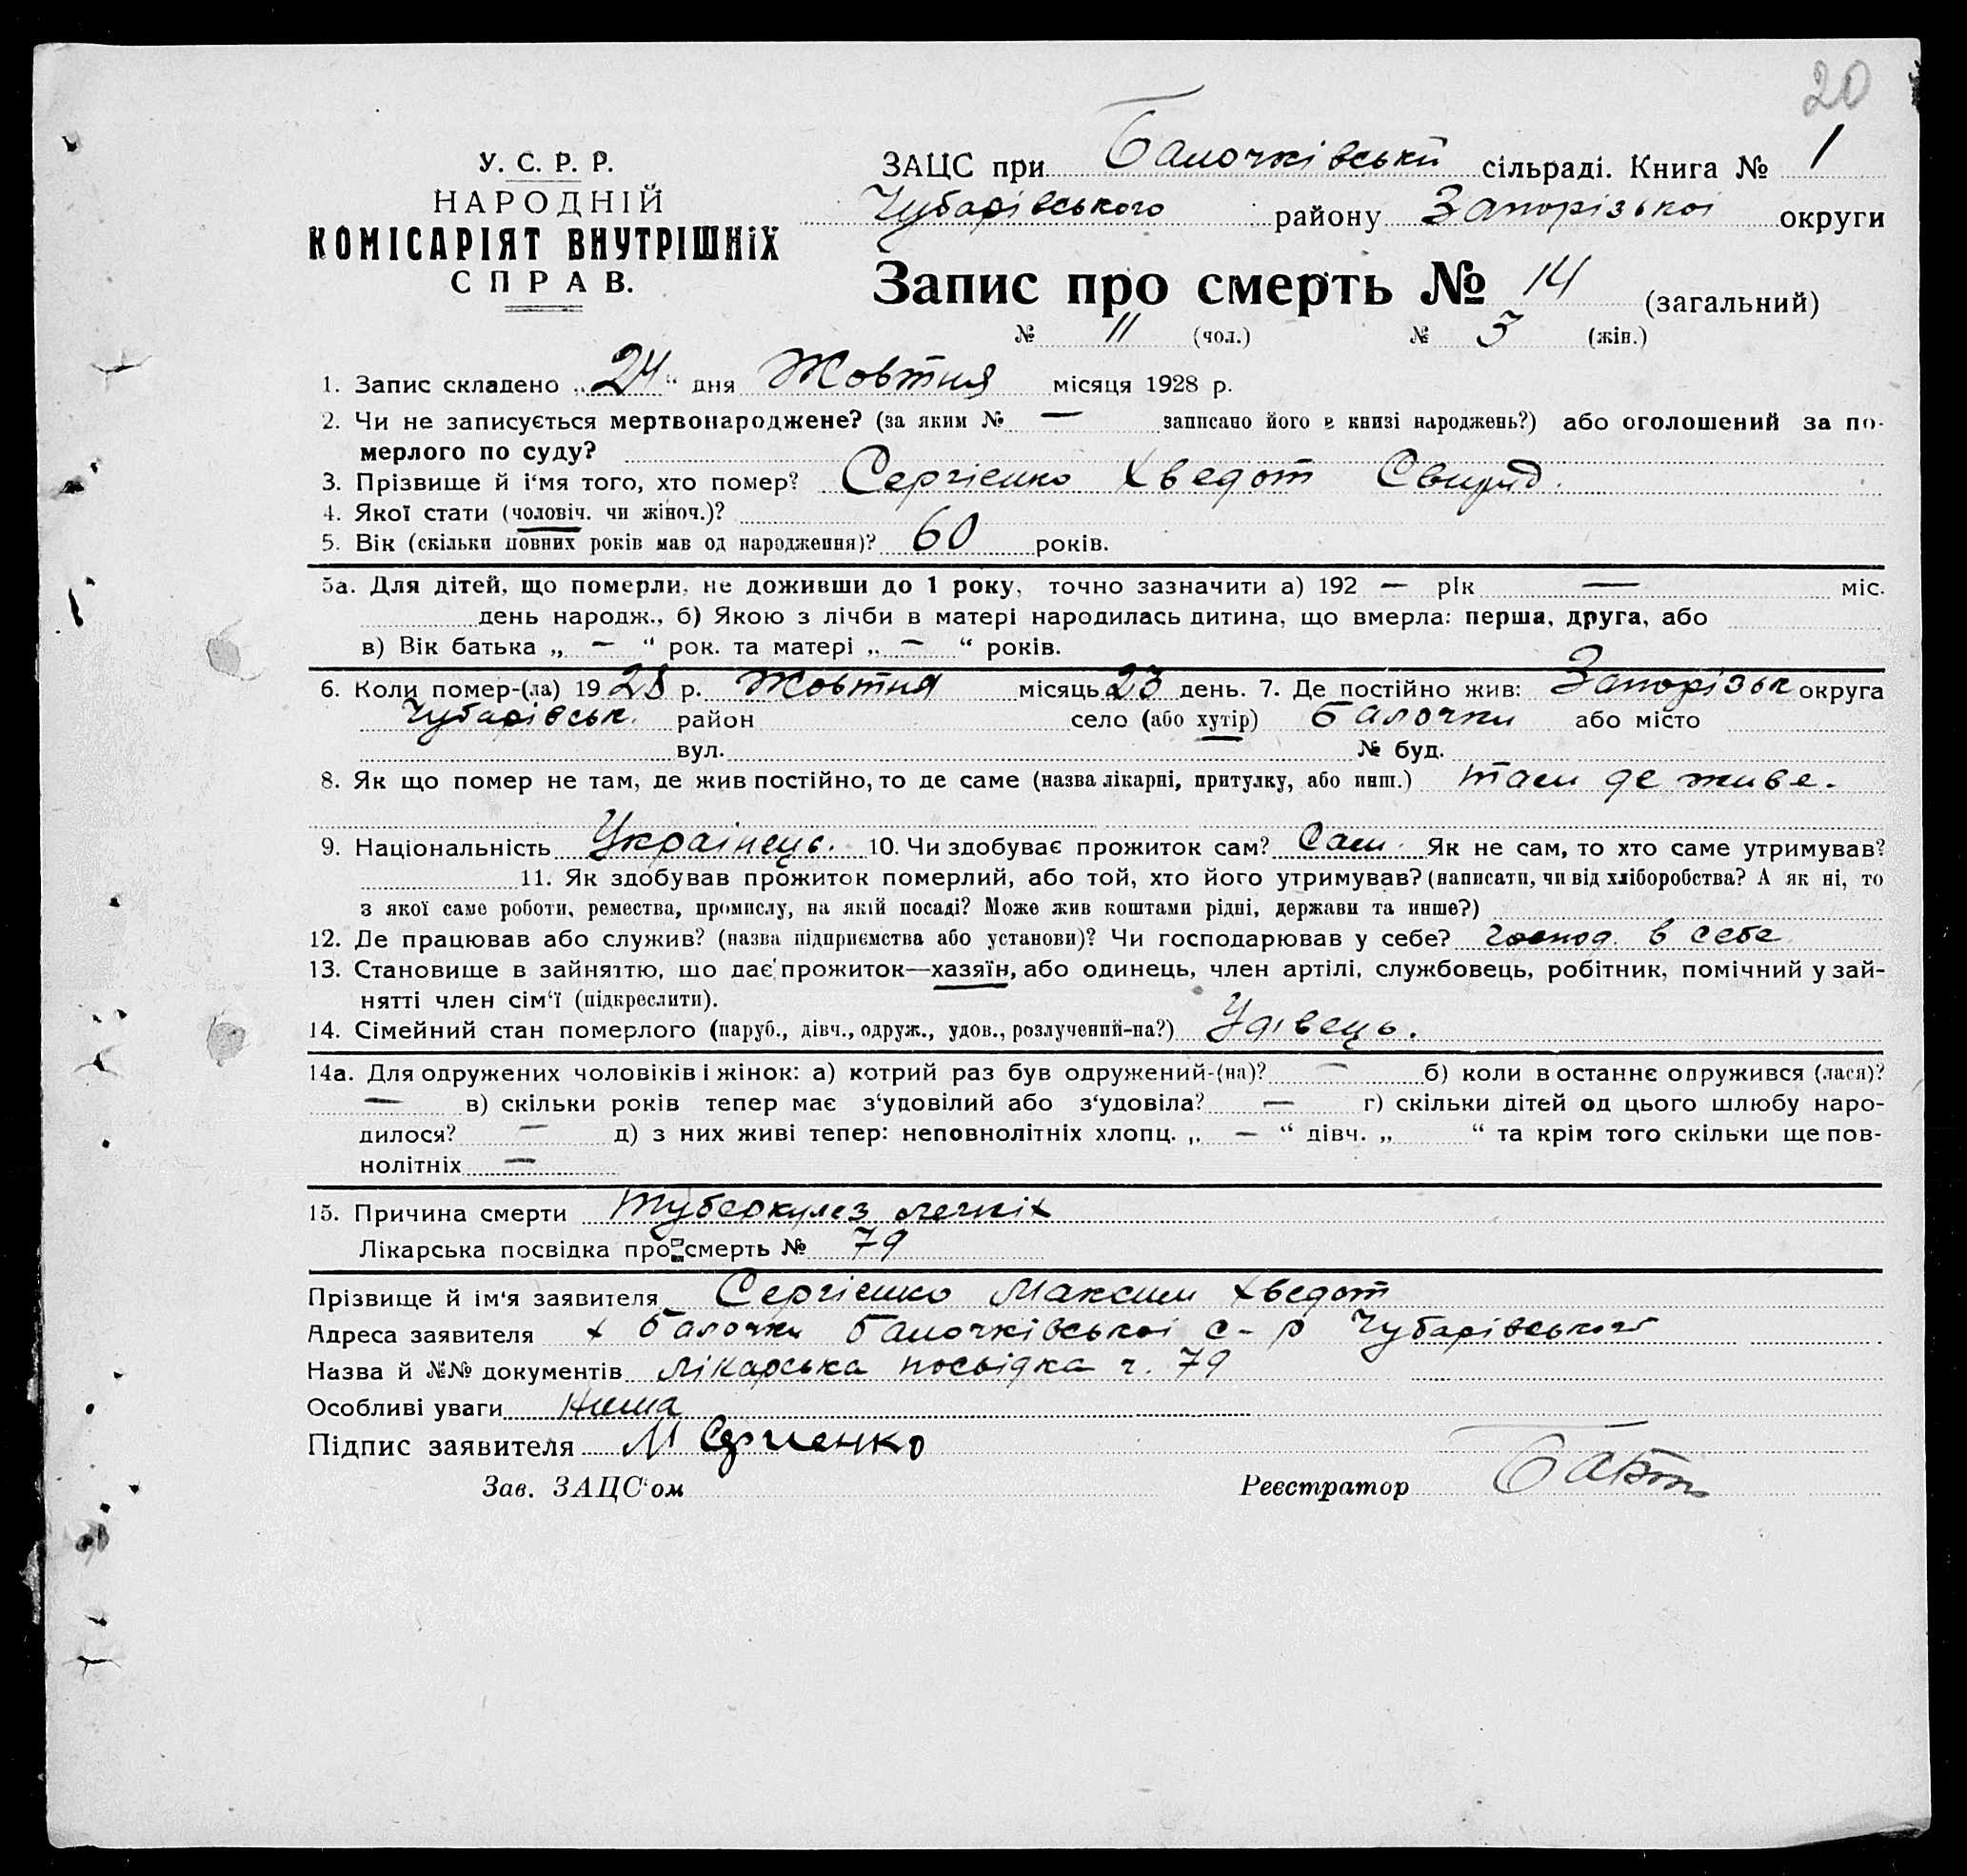 20
У. С. Р. Р.
НАРОДНІЙ
КОМІСАРІЯТ ВНУТРІШНІХ
СПРАВ.
ЗАЦС при Балочківській сільраді. Книга № 1
Чубарівського району Запорізької округи
Запис про смерть № 14 (загальний)
№ 11 (чол.) № 3 (жін.)
1. Запис складено „24“ дня Жовтня місяця 1928 р.
2. Чи не записується мертвонароджене? (за яким № — записано його в книзі народжень?) або оголошений за по-
мерлого по суду?
3. Прізвище й і‘мя того, хто помер? Сергієнко Хведот Свирид.
4. Якої стати (чоловіч. чи жіноч.)?
5. Вік (скільки повних років мав од народження)? 60 років.
5а. Для дітей, що померли, не доживши до 1 року, точно зазначити а) 192 — рік — міс.
день народж., б) Якою з лічби в матері народилась дитина, що вмерла: перша, друга, або
в) Вік батька „ — “ рок. та матері „ — “ років.
6. Коли помер-(ла) 1928 р. Жовтня місяць 23 день. 7. Де постійно жив: Запорізьк округа
Чубарівськ. район село (або хутір) Балочки або місто
вул. № буд.
8. Як що помер не там, де жив постійно, то де саме (назва лікарні, притулку, або инш.) там де живе.
9. Національність Українець. 10. Чи здобуває прожиток сам? Сам. Як не сам, то хто саме утримував?
11. Як здобував прожиток померлий, або той, хто його утримував? (написати, чи від хліборобства? А як ні, то
з якої саме роботи, ремества, промислу, на якій посаді? Може жив коштами рідні, держави та инше?)
12. Де працював або служив? (назва підприємства або установи)? Чи господарював у себе? господ. в себе
13. Становище в зайняттю, що дає прожиток—хазяїн, або одинець, член артілі, службовець, робітник, помічний у зай-
нятті член сім‘ї (підкреслити).
14. Сімейний стан померлого (паруб., дівч., одруж., удов., розлучений-на?) Удівець.
14а. Для одружених чоловіків і жінок: а) котрий раз був одружений-(на)? — б) коли в останнє одружився (лася)?
— в) скільки років тепер має з‘удовілий або з‘удовіла? — г) скільки дітей од цього шлюбу наро-
дилося? — д) з них живі тепер: неповнолітніх хлопц. „ — “ дівч. „ “ та крім того скільки ще пов-
нолітніх —
15. Причина смерти Туберкулез легкіх
Лікарська посвідка про смерть № 79
Прізвище й ім‘я заявителя Сергієнко Максим Хведот
Адреса заявителя х Балочки Балочківської с-р Чубарівського
Назва й №№ документів лікарська посвідка ч. 79
Особливі уваги Нима
Підпис заявителя М Сергиенко
Зав. ЗАЦС‘ом Реєстратор